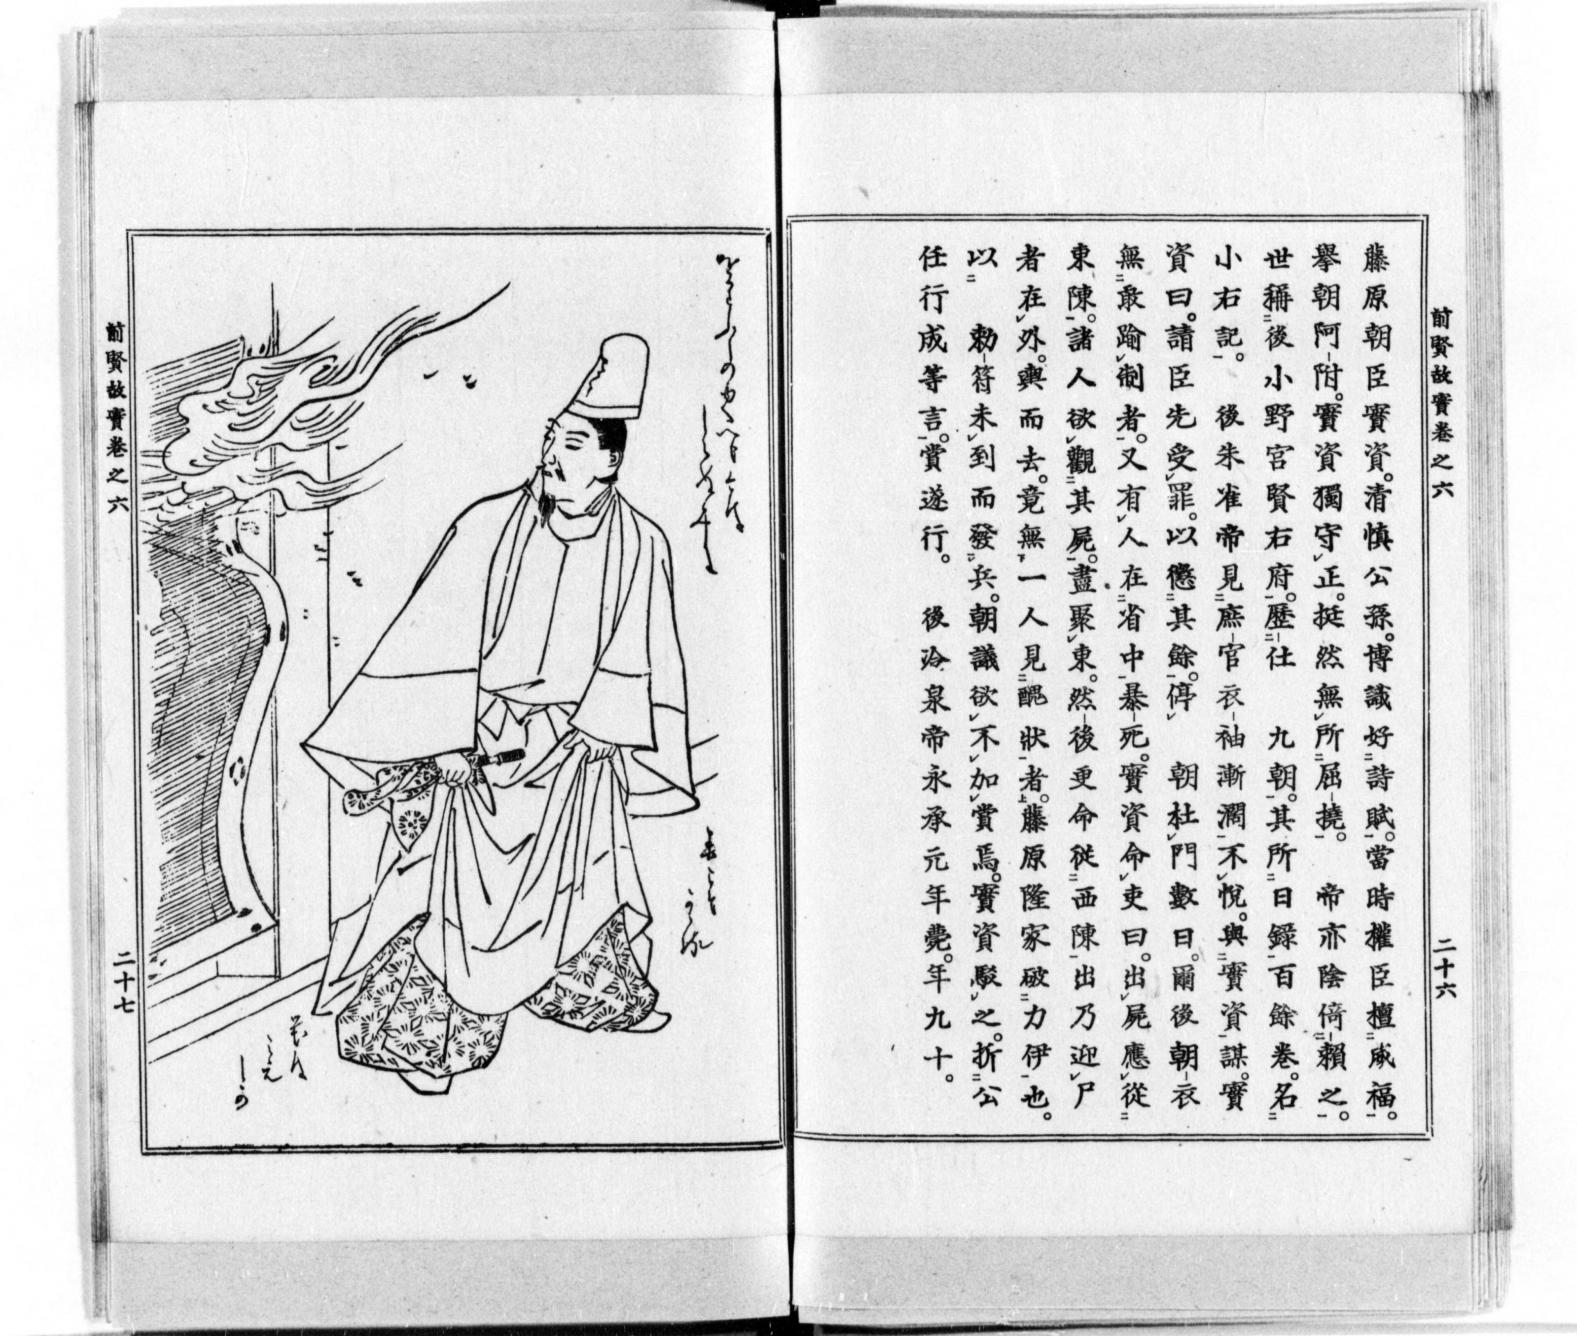 前賢故實卷之六
二十六
藤原朝臣實資。清慎公孫。博識好詩賦。當時權臣擅威福。
擧朝阿附。實資獨守正。挺然無所屈撓。　帝亦陰倚賴之。
世稱後小野宮賢右府。歷仕　九朝。其所日錄百餘卷。名
小右記。　後朱雀帝見庶官衣袖漸濶不悅。與實資謀。實
資曰。請臣先受罪。以懲其餘。停　朝杜門數日。爾後朝衣
無敢踰制者。又有人在省中暴死。實資命吏曰。出屍應從
東陳。諸人欲觀其屍。盡聚東。然後更命從西陳出乃迎尸
者在外。輿而去。竟無一人見醜狀者。藤原隆家破刀伊也。
以　勅符未到而發兵。朝議欲不加賞焉。實資駁之。折公
任行成等言。賞遂行。　後冷泉帝永承元年薨。年九十。
前賢故實卷之六
二十七